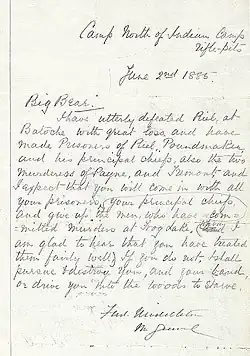 Camp North of Indian Camp
rifle-pits
June 2nd 1885.
Big Bear.
I have utterly defeated Riel, at
Batoche with great loss, and have
made Prisoners of Riel, Poundmaker,
and his principal chiefs, also the two
murderers of Payne, and Tremont and
I expect that you will come in with all
your prisoners, your principal chiefs,
and give up the men, who have com-
-mitted murders at Frogdake, I
am glad to hear that you have treated
them fairly well, If you do not, I shall
pursue & destroy you, and your band,
or drive you into the woods to starve.
Fred Middleton
M General